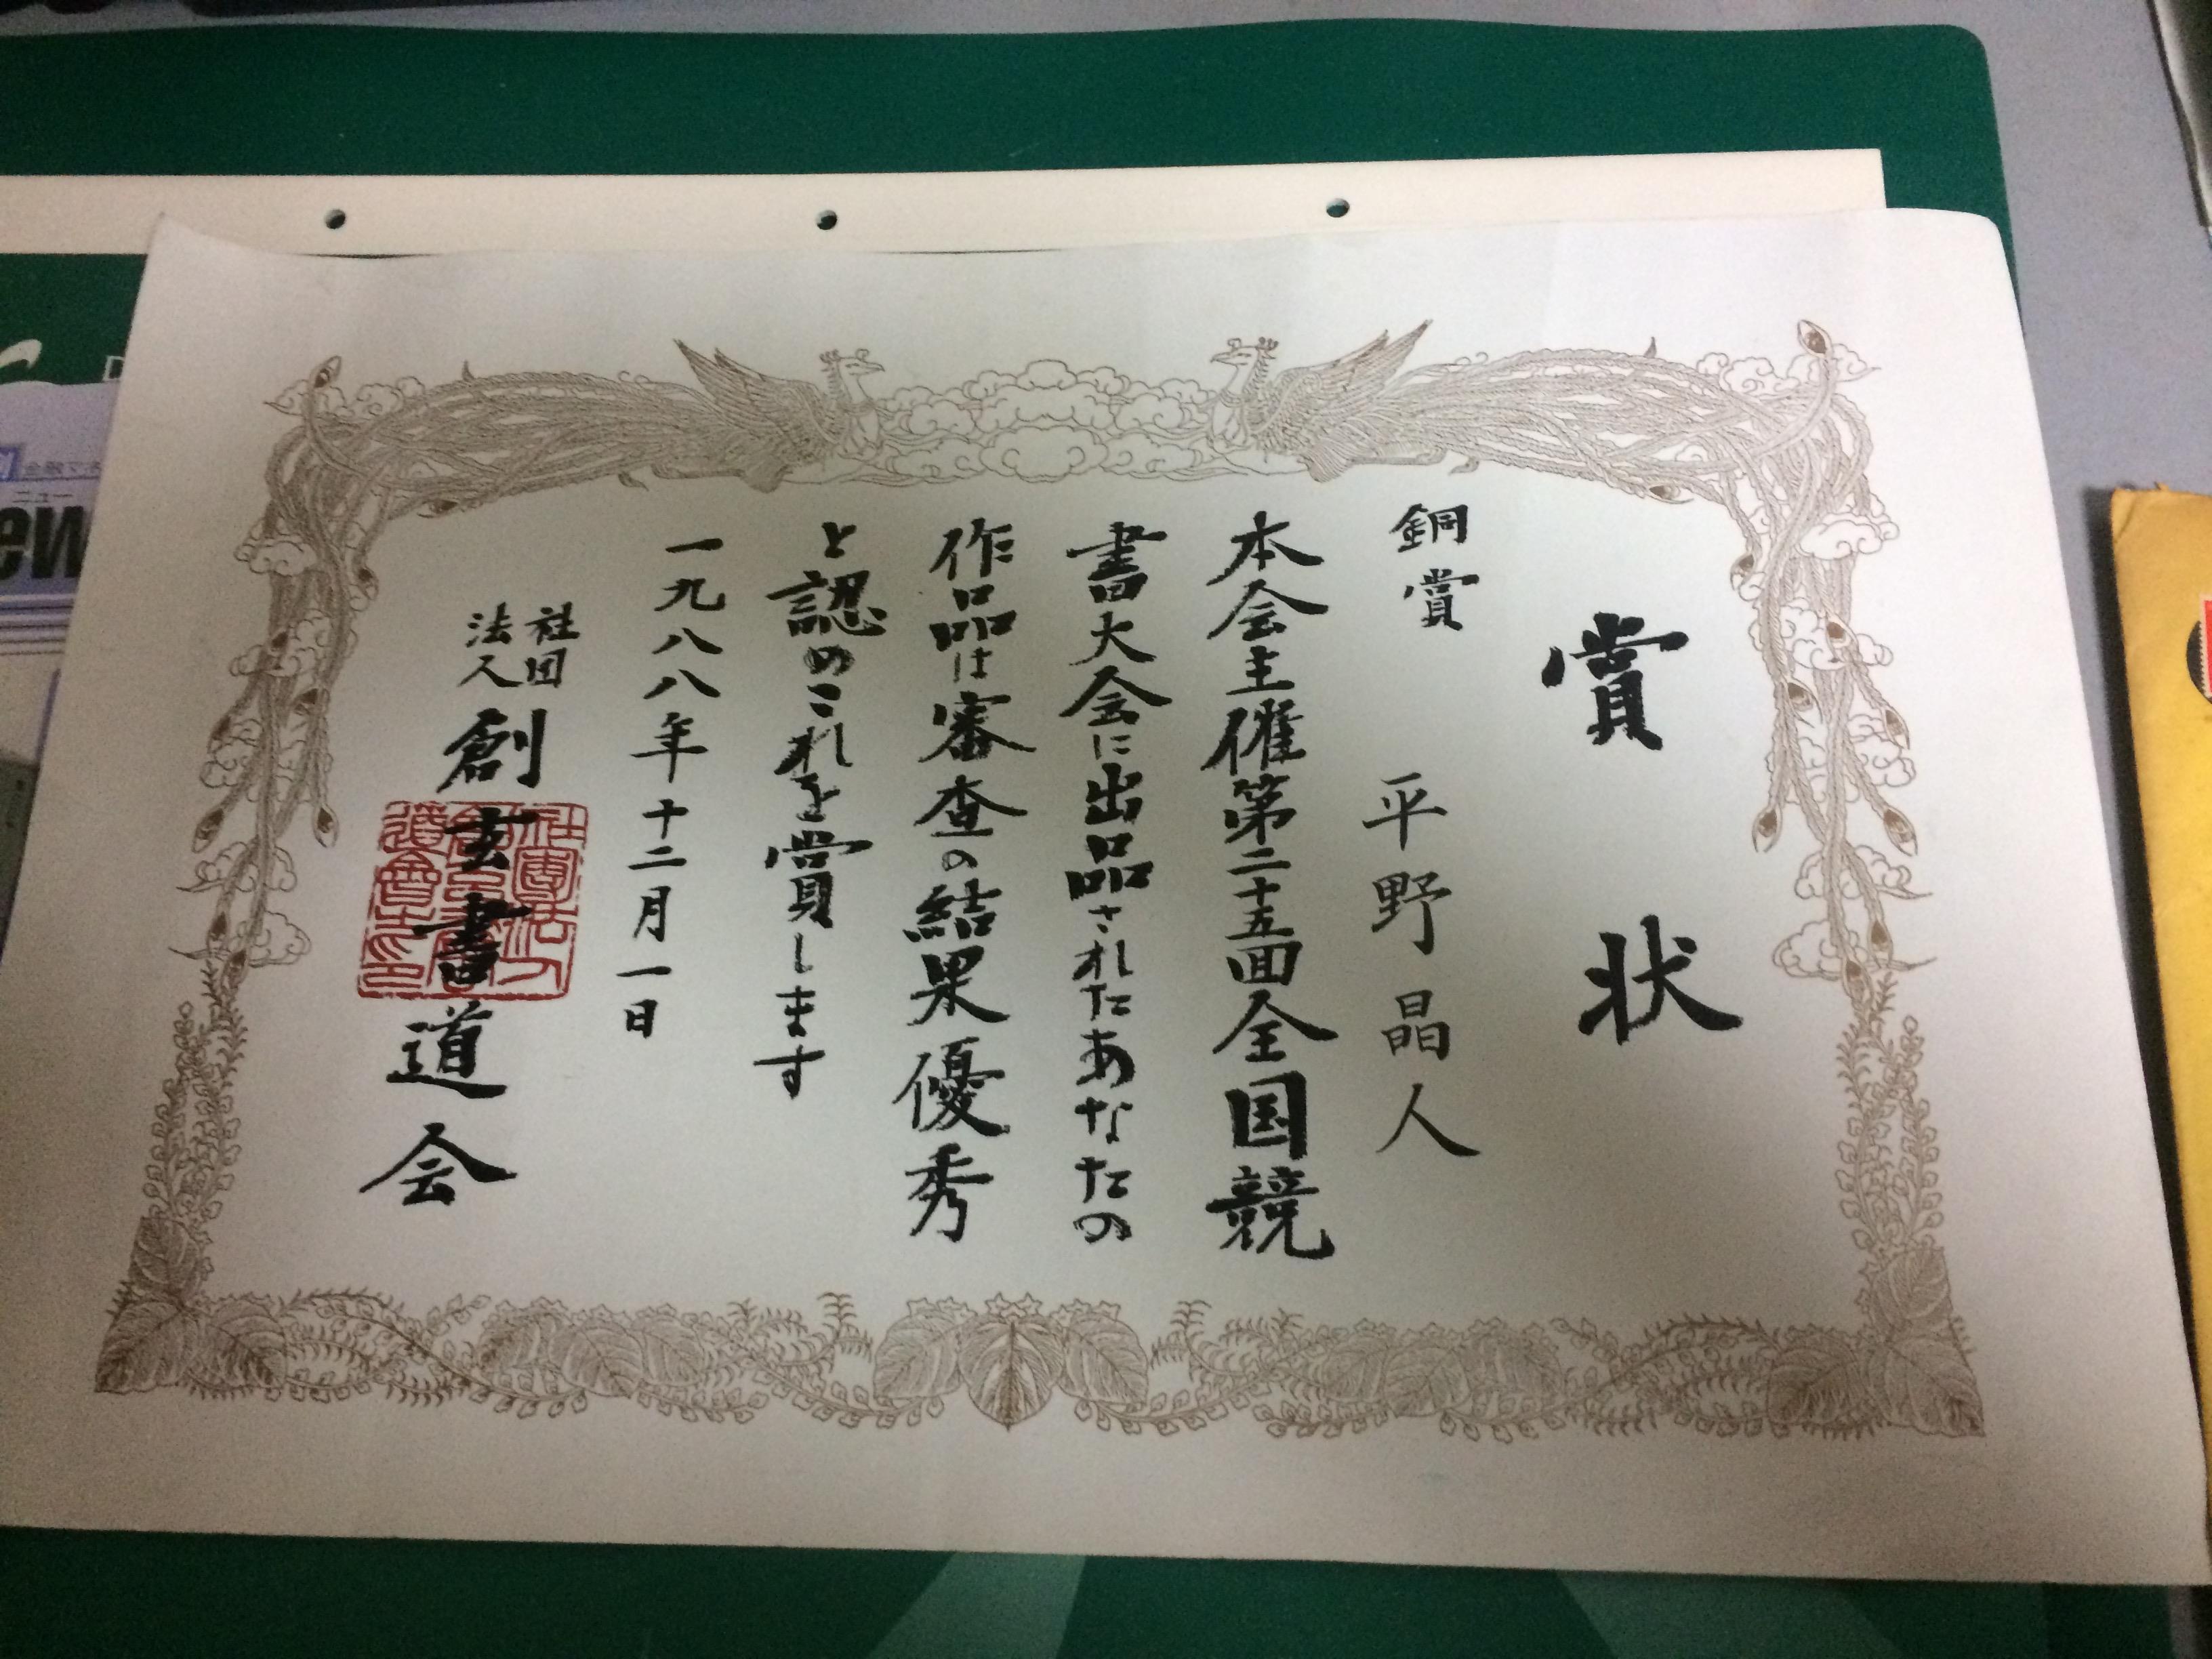 賞状
銅賞 平野晶人
本会主催第二十五回全国競
書大会に出品されたあなたの
作品は審査の結果優秀
と認めこれを賞します
一九八八年十二月一日
社団
法人
創玄書道会
ew
ニュー